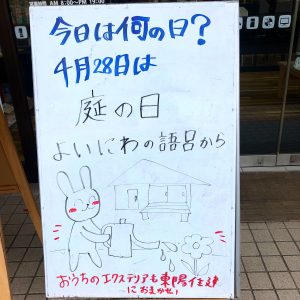 営業時間 AM 8:00〜PM 19:00
今日は何の日?
4月28日は
庭の日
よいにわの語呂から
おうちのエクステリアも東陽住建
におまかせ!